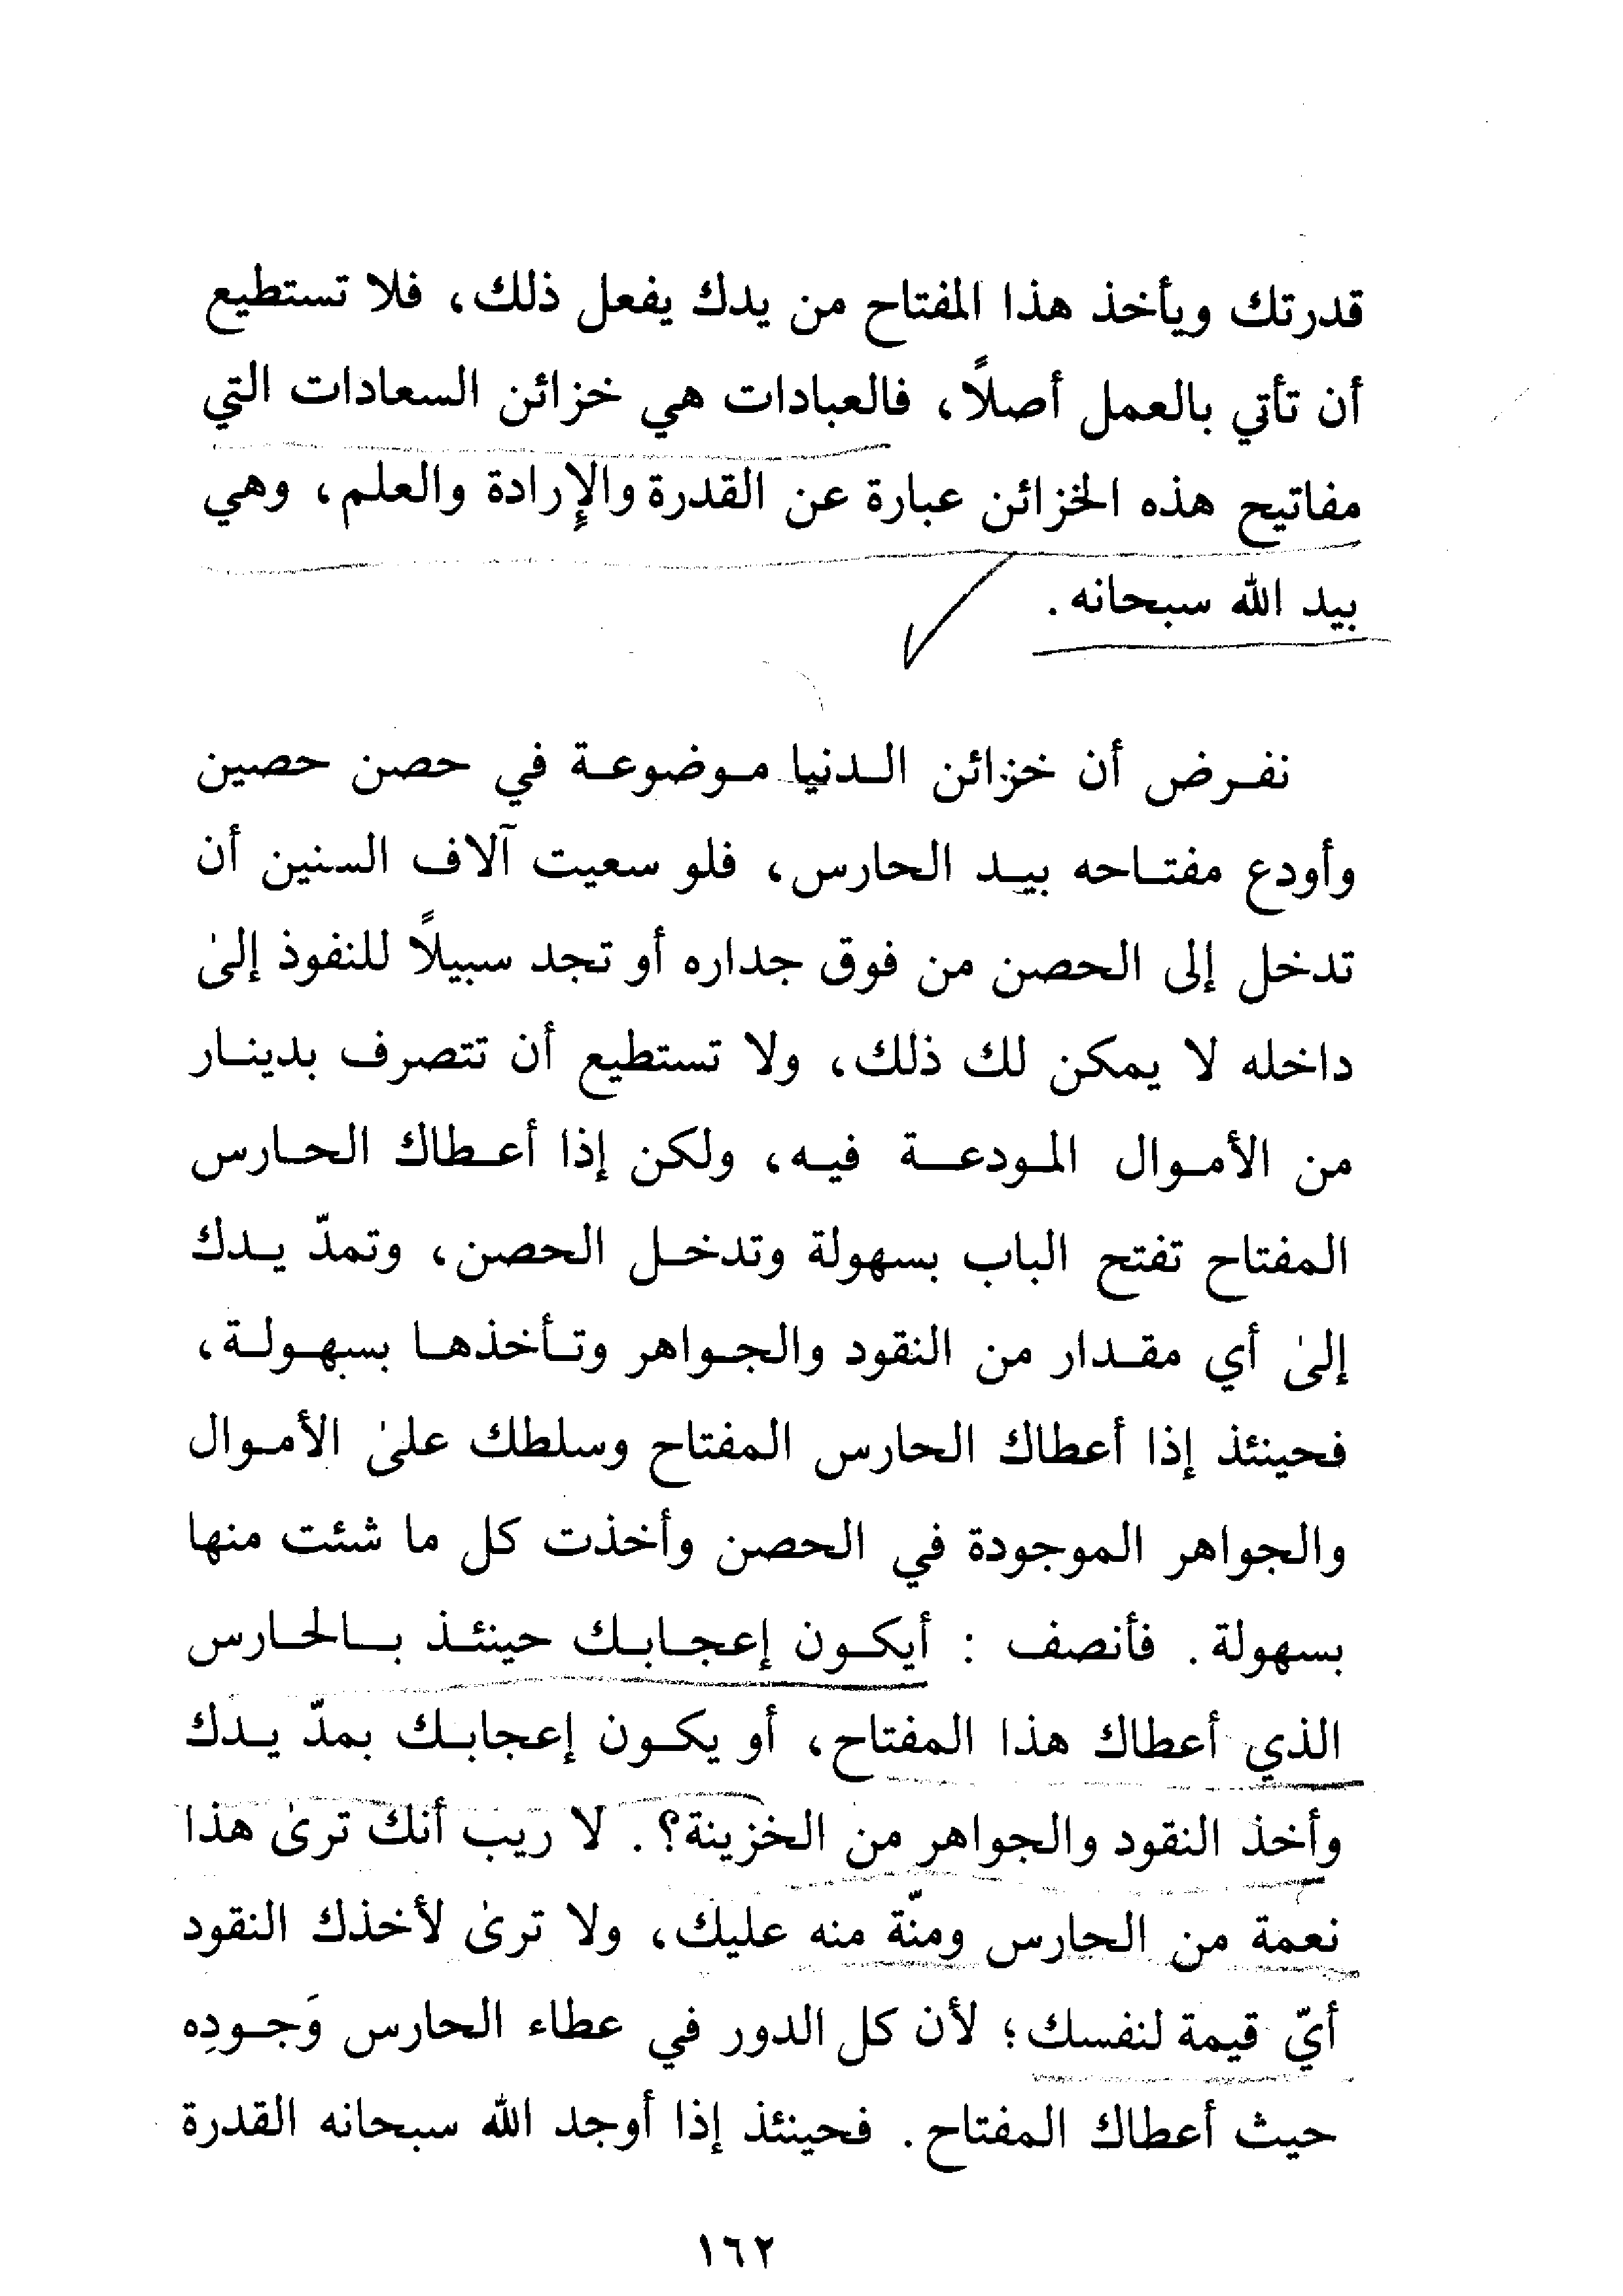 قدرتك ويأخذ هذا المفتاح من يدك يفعل ذلك، فلا تستطيع
أن تأتي بالعمل أصلاً، فالعبادات هي خزائن السعادات التي
مفاتيح هذه الخزائن عبارة عن القدرة والإرادة والعلم، وهي
بيد الله سبحانه.
نفرض أن خزائن الدنيا موضوعة في حصن حصين
وأودع مفتاحه بيد الحارس، فلو سعيت آلاف السنين أن
تدخل إلى الحصن من فوق جداره أو تجد سبيلاً للنفوذ إلىٰ
داخله لا يمكن لك ذلك، ولا تستطيع أن تتصرف بدينار
من الأموال المودعة فيه، ولكن إذا أعطاك الحارس
المفتاح تفتح الباب بسهولة وتدخل الحصن، وتمدّ يدك
إلىٰ أي مقدار من النقود والجواهر وتأخذها بسهولة،
فحينئذ إذا أعطاك الحارس المفتاح وسلطك علىٰ الأموال
والجواهر الموجودة في الحصن وأخذت كل ما شئت منها
بسهولة. فأنصف : أيكون إعجابك حينئذ بالحارس
الذي أعطاك هذا المفتاح، أو يكون إعجابك بمدّ يدك
وأخذ النقود والجواهر من الخزينة؟. لا ريب أنك ترىٰ هذا
نعمة من الحارس ومنّة منه عليك، ولا ترىٰ لأخذك النقود
أيّ قيمة لنفسك؛ لأن كل الدور في عطاء الحارس وَجودِه
حيث أعطاك المفتاح. فحينئذ إذا أوجد الله سبحانه القدرة
١٦٢